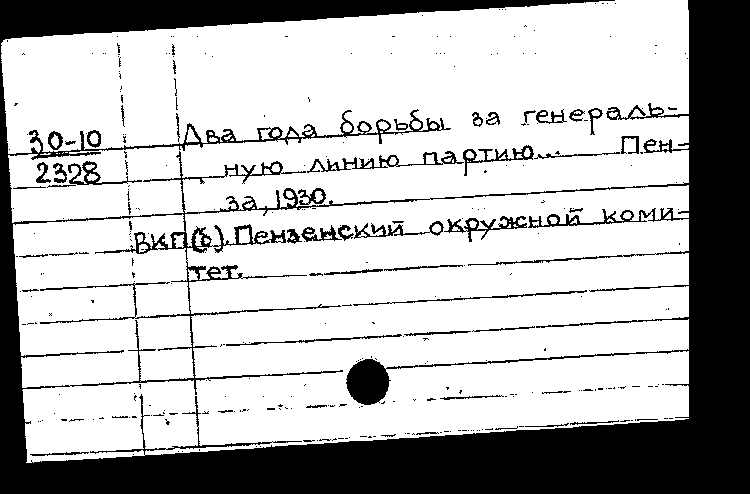 30-10
2328
Два года борьбы за генераль-
ную линию партию... Пен-
за, 1930.
ВКП(б). Пензенский окружной коми-
тет.